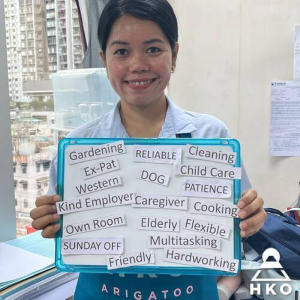 Gardening RELIABLE Cleaning
Ex-Pat DOG Child Care
Western PATIENCE
Kind Employer Caregiver Cooking
Own Room Elderly Flexible
SUNDAY OFF Multitasking
Friendly Hardworking
ARIGATOO
HKO